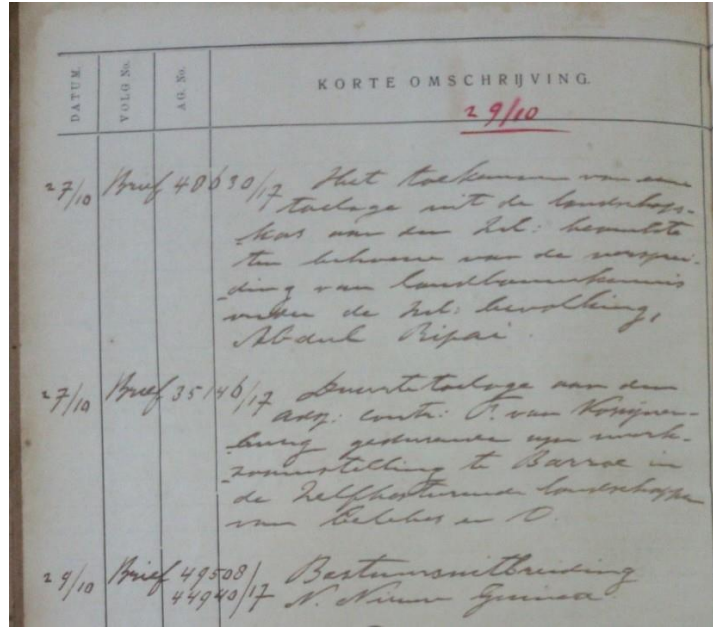 DATUM.
VOLG No.
AG. No.
KORTE OMSCHRIJVING.
29/10
27/10 Brief 48630/17 Het toekennen van eene
toelage uit de landschaps-
kas aan den Inl: beambte
ten behoeve van de versprei-
-ding van landbouwkennis
onder de Inl: bevolking,
Abdul Ripai.
27/10 Brief 35146/17 Duurtetoelage aan den
adsp: contr: F. van
-burg gedurende zijn werk-
-zaamstelling te Barroe in
de Zelfbesturende landschappen
van Celebes en O.
29/10 Brief 49508/ Bestuursuitbreiding
44940/17 N. Nieuw Guinea.